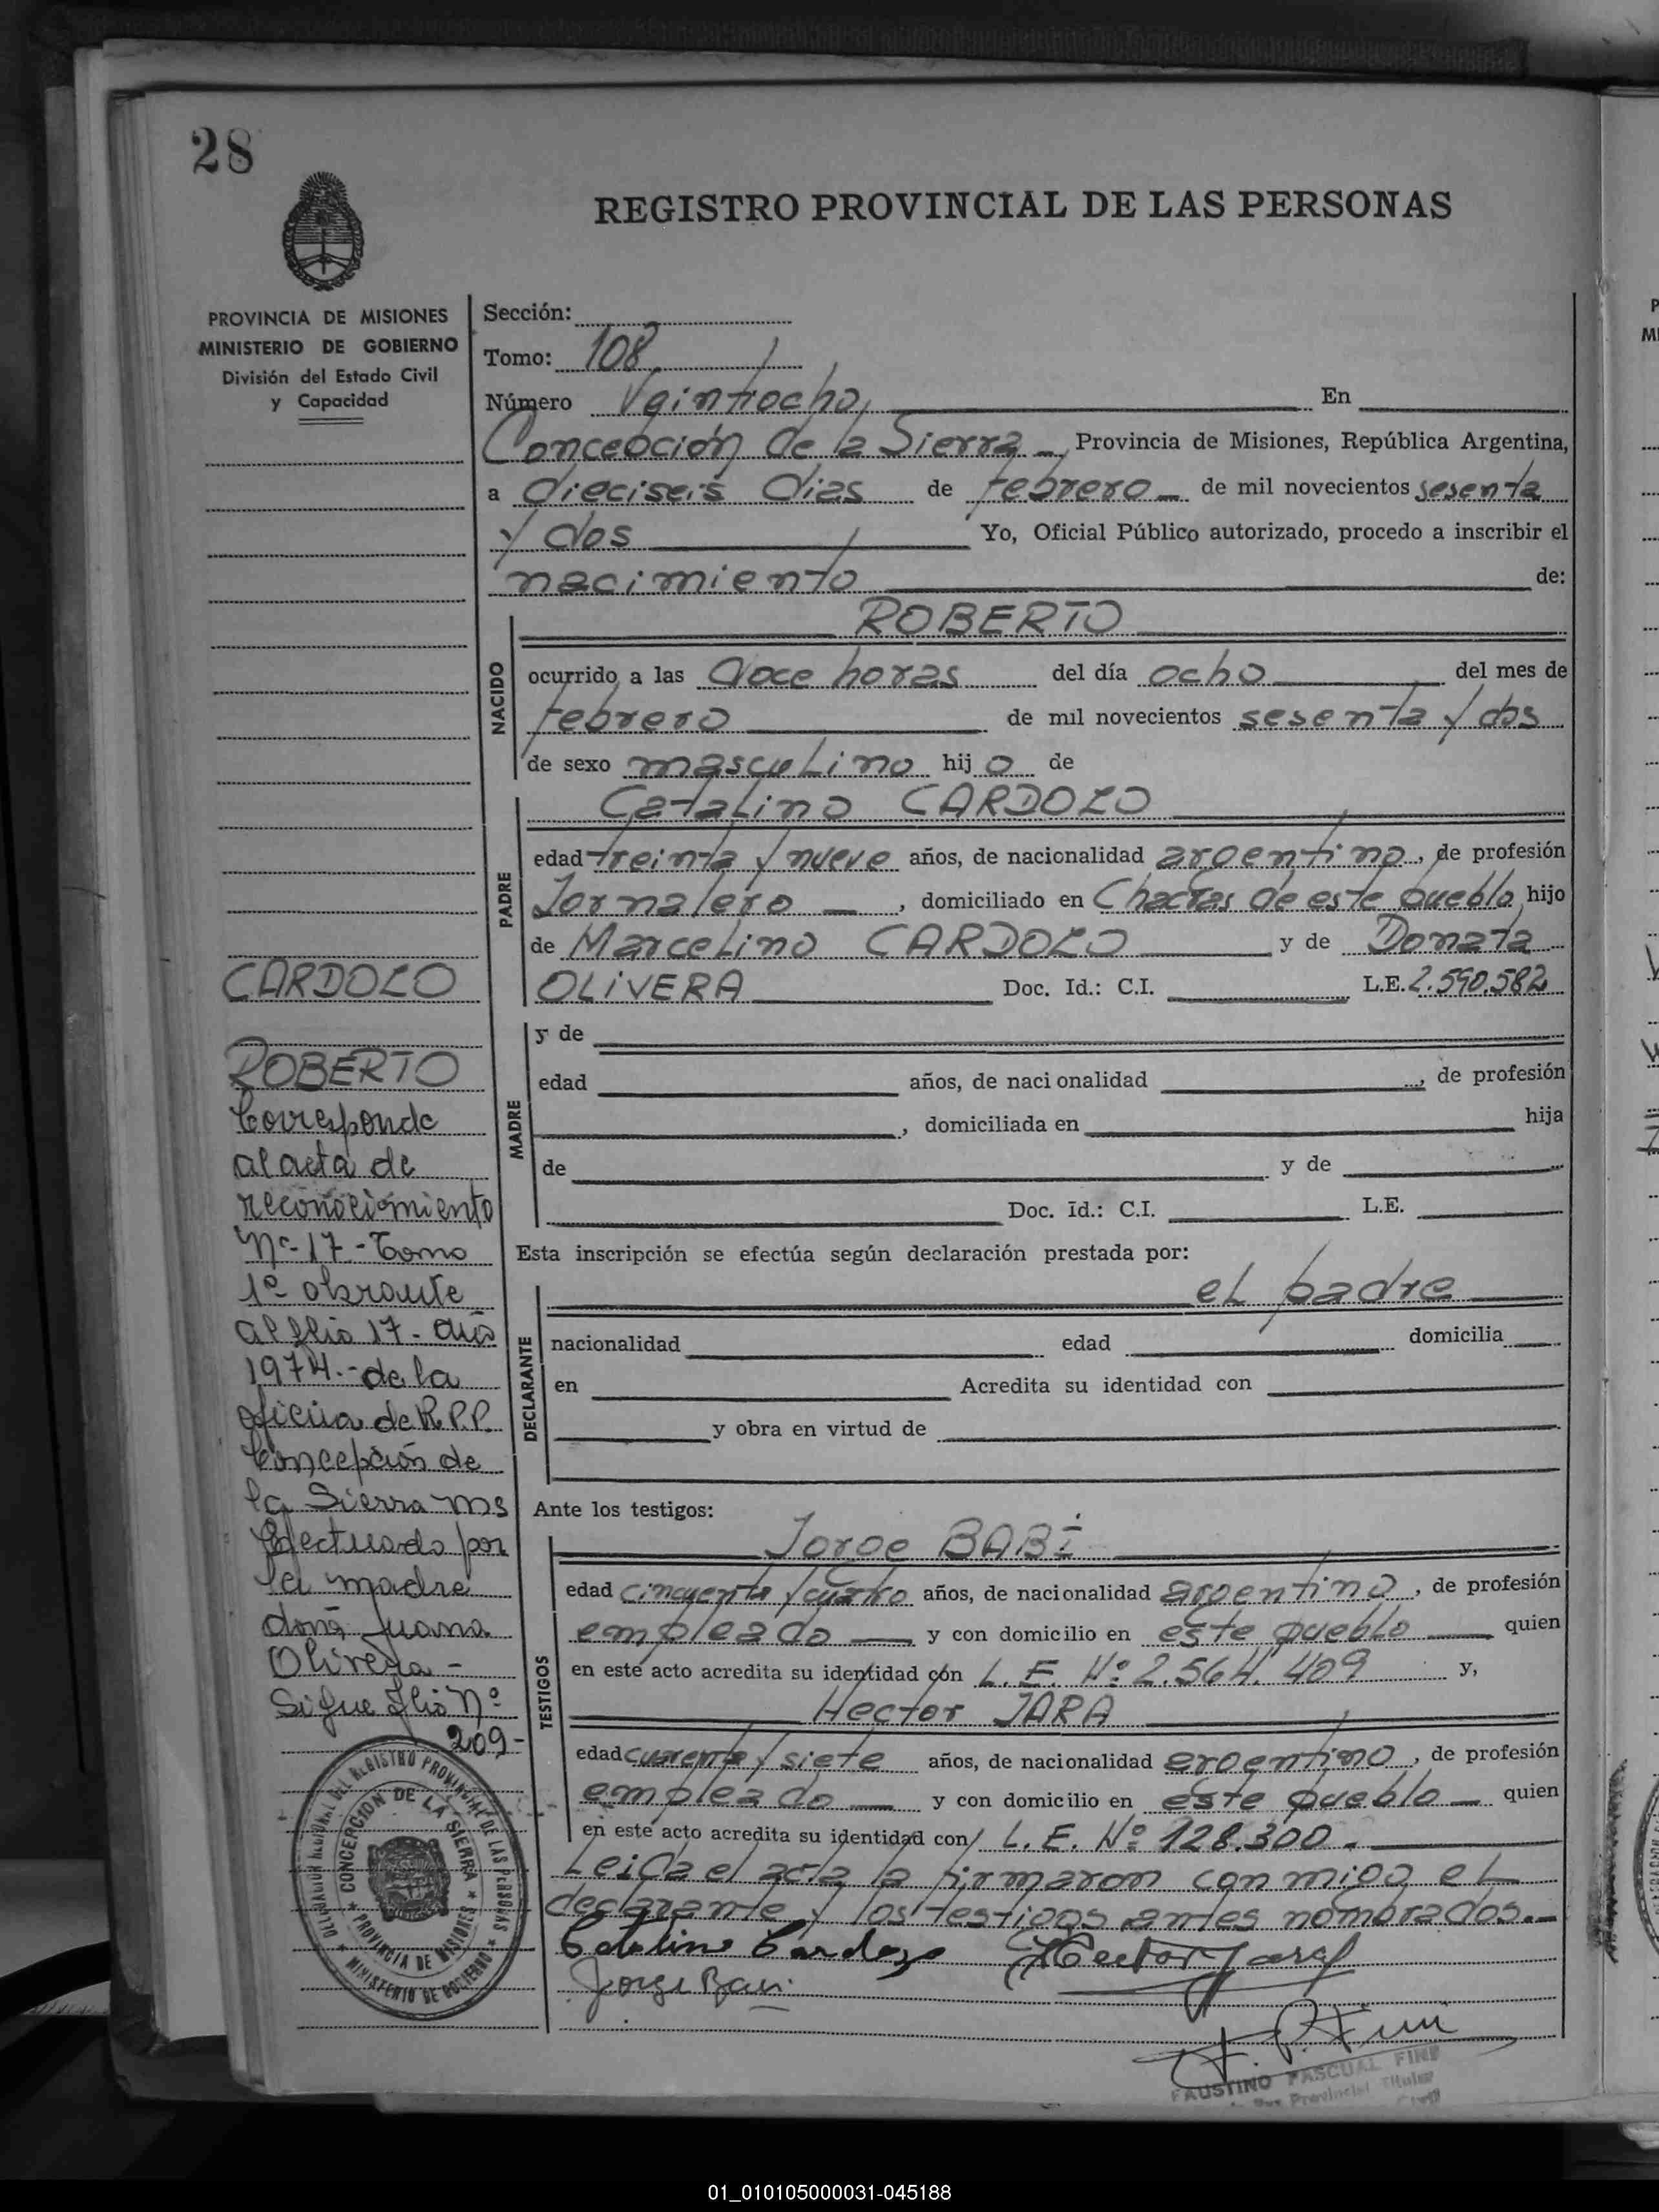 28
REGISTRO PROVINCIAL DE LAS PERSONAS
PROVINCIA DE MISIONES
MINISTERIO DE GOBIERNO
División del Estado Civil
y Capacidad
Sección:
Tomo: 108
Número Veintiocho En
Concepción de la Sierra Provincia de Misiones, República Argentina,
a dieciseis dias de febrero de mil novecientos sesenta
y dos Yo, Oficial Público autorizado, procedo a inscribir el
nacimiento de:
NACIDO
ROBERTO
ocurrido a las doce horas del día ocho del mes de
febrero de mil novecientos sesenta y dos
de sexo masculino hijo de
PADRE
Catalino CARDOZO
edad treinta y nueve años, de nacionalidad argentino, de profesión
Jornalero, domiciliado en Chacras de este pueblo hijo
de Marcelino CARDOZO y de Donata
OLIVERA Doc. Id.: C.I. L.E. 2.590.582
MADRE
y de
edad años, de naci onalidad , de profesión
, domiciliada en hija
de y de
Doc. Id.: C.I. L.E.
Esta inscripción se efectúa según declaración prestada por:
DECLARANTE
el padre
nacionalidad edad domicilia
en Acredita su identidad con
y obra en virtud de
Ante los testigos:
TESTIGOS
Jorge BABI
edad cincuenta y cuatro años, de nacionalidad argentino, de profesión
empleado y con domicilio en este pueblo quien
en este acto acredita su identidad con L. E. Nº 2.564.409 y,
Hector JARA
edad cuarenta y siete años, de nacionalidad argentino, de profesión
empleado y con domicilio en este pueblo quien
en este acto acredita su identidad con L. E. Nº 128.300.
Leida el acta la firmaron conmigo el
declarante y los testigos antes nombrados.
Catalino Cardozo Hector Jara
Jorge
CARDOZO
ROBERTO
Corresponde
al acta de
reconocimiento
Nº 17 - Tomo
1º obrante
al flio 17 - año
1974.- de la
oficina de R.P.P.
Concepción de
la Sierra Ms
Efectuado por
la madre
doña Juana
Olivera -
Sigue flio Nº
209-
DELEGACION REGIONAL DEL REGISTRO PROVINCIAL DE LAS PERSONAS
MINISTERIO DE GOBIERNO
CONCEPCION DE LA SIERRA
PROVINCIA DE MISIONES
FAUSTINO PASCUAL FINI
Provincial Titular
Civil
01_010105000031-045188